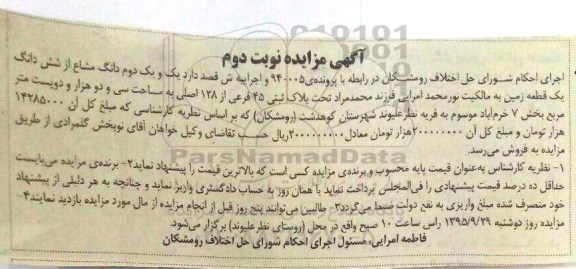 آگهی مزایده نوبت دوم
اجرای احکام شورای حل اختلاف رومشگان در رابطه با پرونده‌ی ۹۴۰۰۵ و اجراییه ش قصد دارد یک و یک دوم دانگ مشاع از شش دانگ
یک قطعه زمین به مالکیت نورمحمد امرایی فرزند محمدمراد تحت پلاک ثبتی ۴۵ فرعی از ۱۲۸ اصلی به مساحت سی و دو هزار و دویست متر
مربع بخش ۷ خرم‌آباد موسوم به قریه نظرعلیوند شهرستان کوهدشت (رومشکان) که بر اساس نظریه کارشناسی که مبلغ کل آن ۱۴۲۸۵۰۰۰
هزار تومان و مبلغ کل آن ۲۰۰۰۰۰۰۰۰هزار تومان معادل۲۰۰۰۰۰۰۰۰۰ریال حسب تقاضای وکیل خواهان آقای نوبخش گلمرادی از طریق
مزایده به فروش می‌رسد.
۱- نظریه کارشناس به‌عنوان قیمت پایه محسوب و برنده‌ی مزایده کسی است که بالاترین قیمت را پیشنهاد نماید۲- برنده‌ی مزایده می‌بایست
حداقل ده درصد قیمت پیشنهادی را فی‌المجلس پرداخت نماید یا همان روز به حساب دادگستری واریز نماید و چنانچه به هر دلیلی از پیشنهاد
خود منصرف شده مبلغ واریزی به نفع دولت ضبط می‌گردد۳- طالبین می‌توانند پنج روز قبل از انجام مزایده از مال مورد مزایده بازدید نمایند۴-
مزایده روز دوشنبه ۱۳۹۵/۹/۲۹ راس ساعت ۱۰ صبح واقع در محل (روستای نظرعلیوند) برگزار می‌شود.
فاطمه امرایی، مسئول اجرای احکام شورای حل اختلاف رومشکان
ParsNamadData